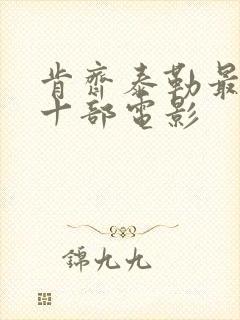 肯齊泰勒最
十部電影
錦九九